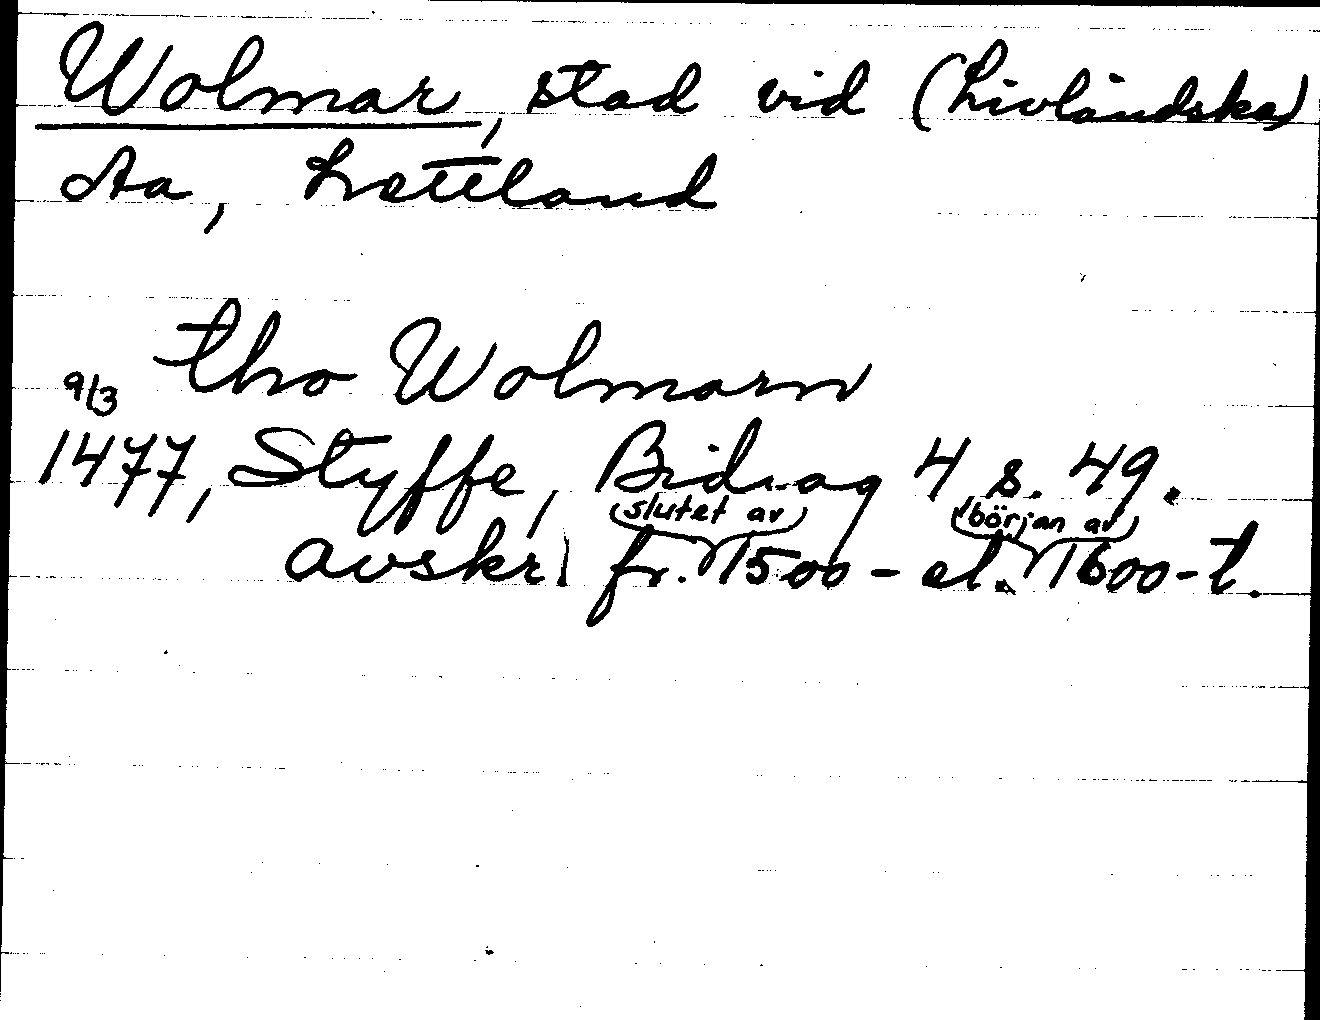 Wolmar, stad vid (Livländska)
Aa, Lettland
tho Wolmarn
9/3
1477, Styffe, Bidrag 4 s. 49.
(slutet av) (början av)
avskr. fr. 1500- el. 1600-t.